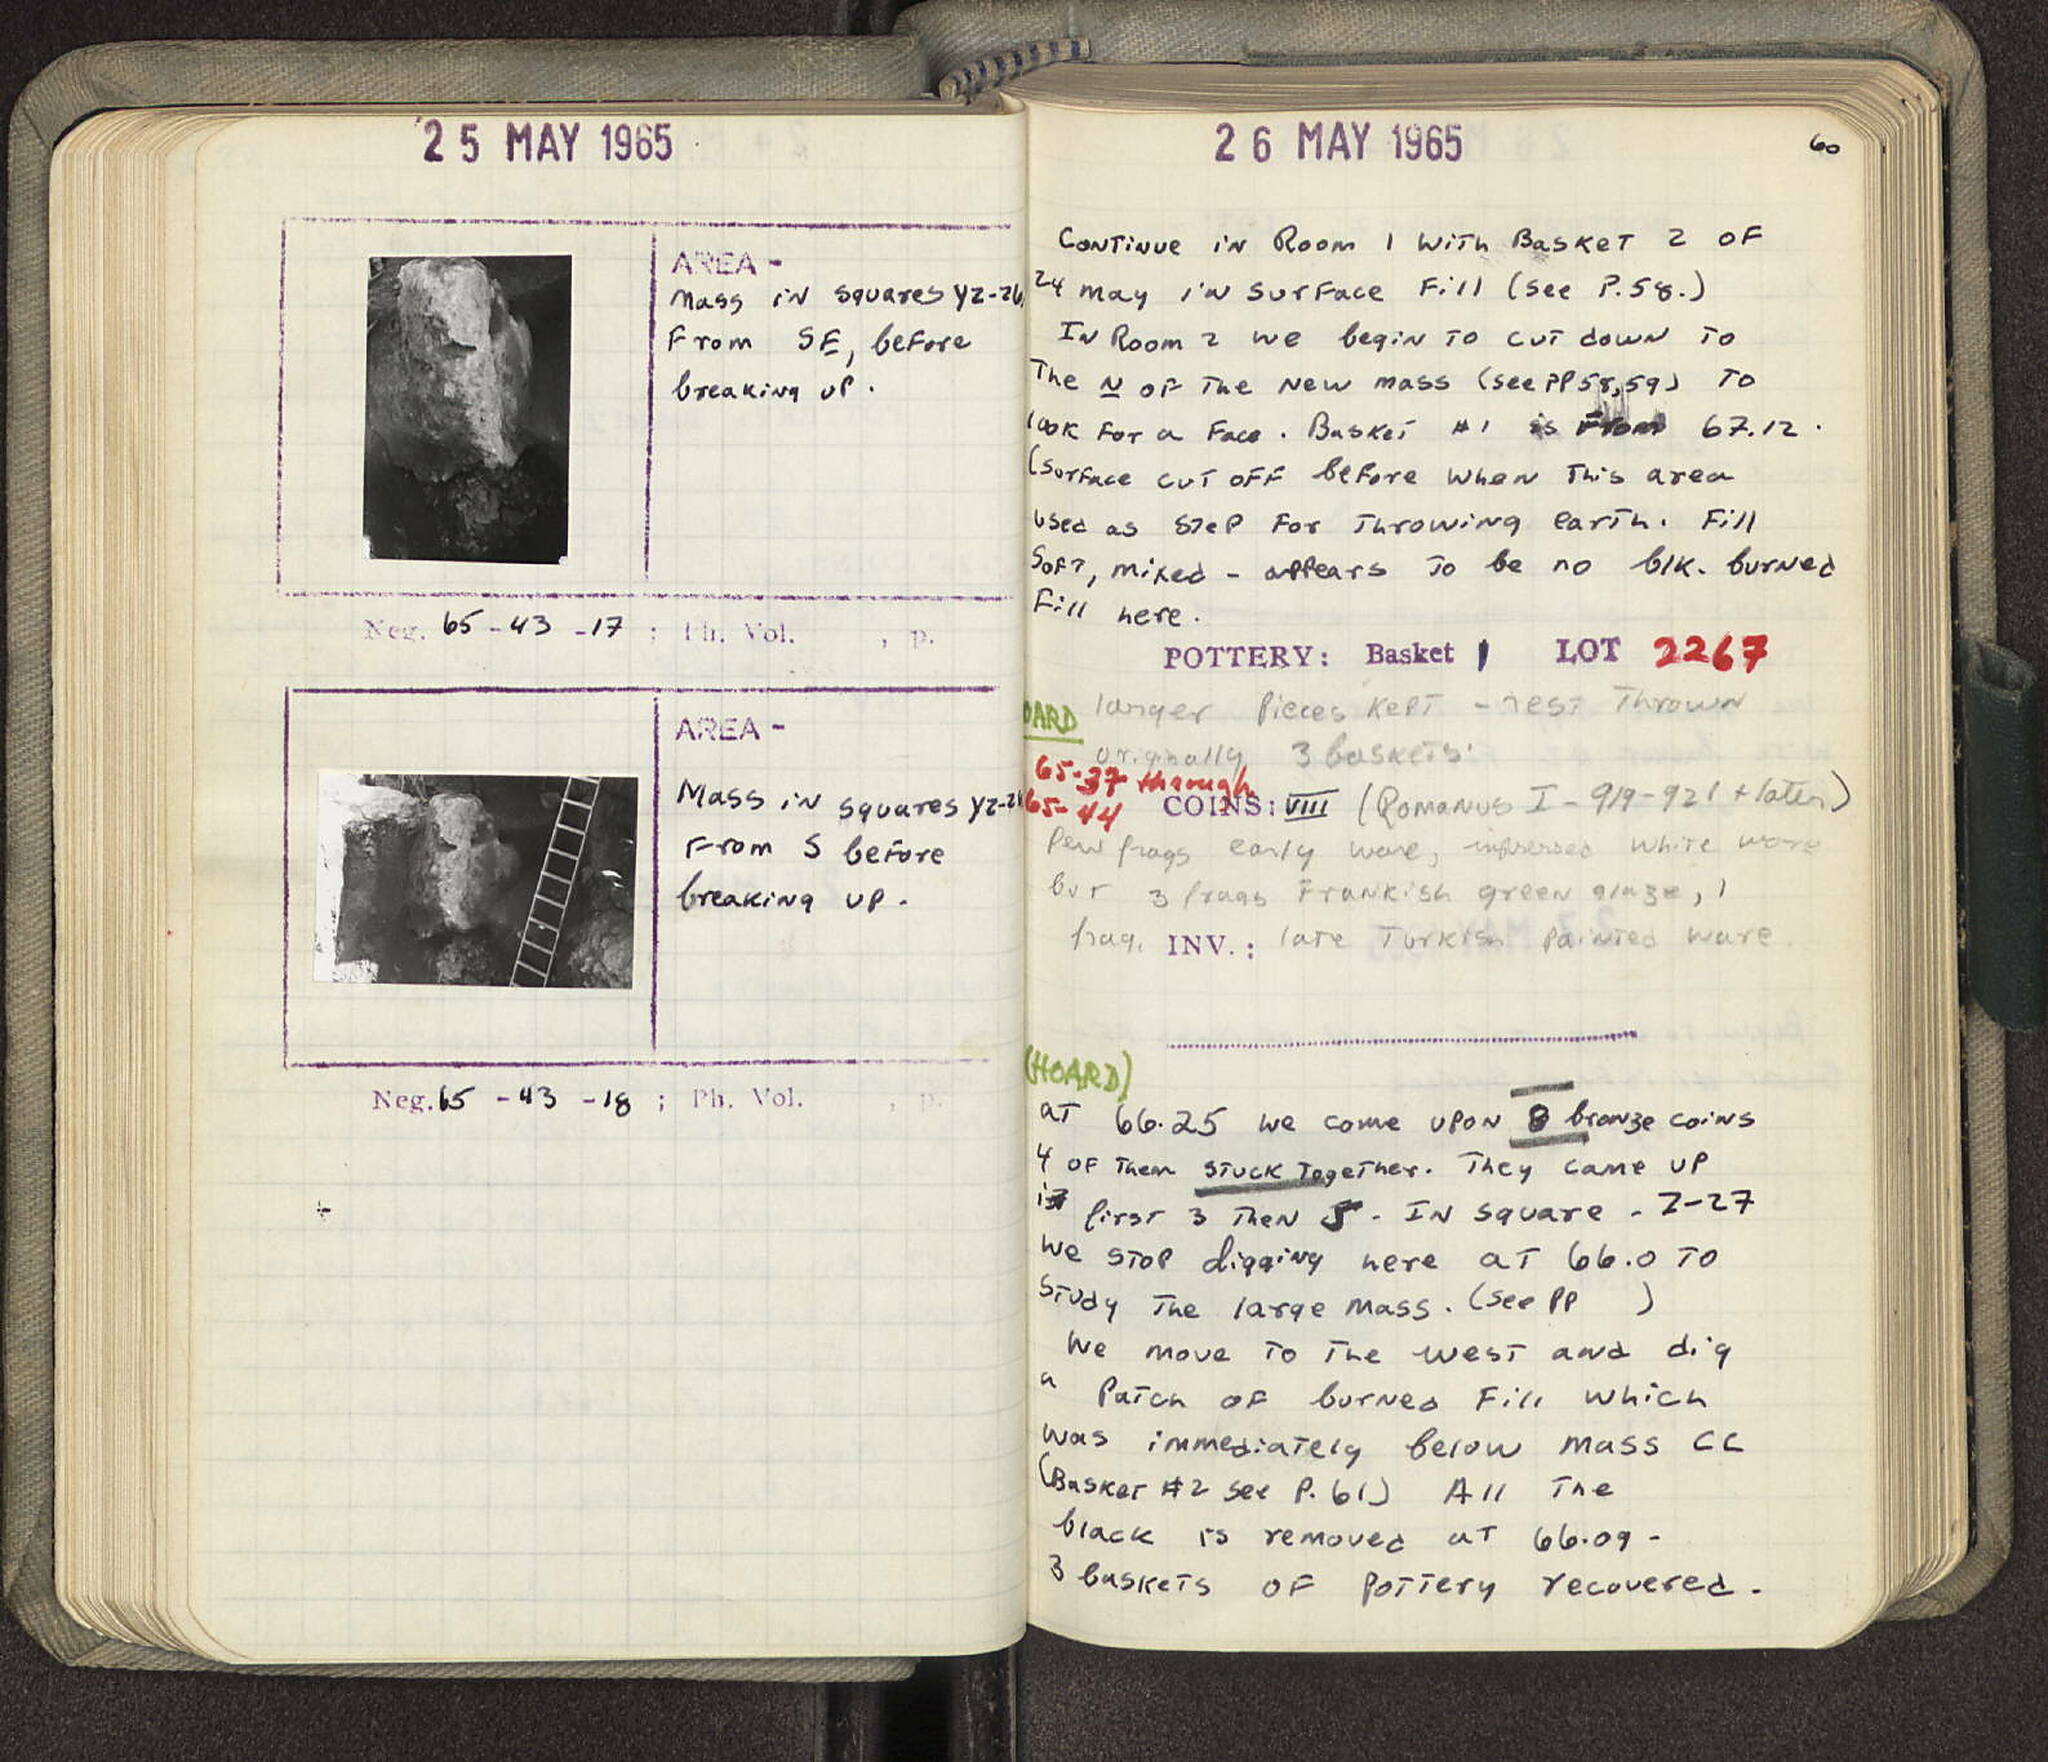 25 MAY 1965
AREA -
Mass in squares YZ-26,
From SE, before
breaking up.
Neg. 65-43-17 ; Ph. Vol. , p.
AREA -
Mass in squares YZ-2
From S before
breaking up.
Neg. 65-43-18 ; Ph. Vol. , p.
26 MAY 1965
60
Continue in Room 1 with Basket 2 of
24 May in surface fill (see P.58.)
In Room 2 we begin to cut down to
the N of the new mass (see PP58,59) to
look for a face. Basket #1 is from 67.12.
(surface cut off before when this area
used as step for throwing earth. Fill
soft, mixed - appears to be no blk. burned
fill here.
POTTERY: Basket 1 LOT 2267
OARD
larger pieces kept - rest thrown
originally 3 baskets.
65-37 through
65-44
COINS: VIII (Romanus I - 919-921 + later)
few frags early ware, impressed white ware
but 3 frags Frankish green glaze, 1
frag. late Turkish painted ware.
INV.:
(HOARD)
at 66.25 we come upon 8 bronze coins
4 of them stuck together. They came up
first 3 then 5. In square - Z-27
We stop digging here at 66.0 to
study the large mass. (see PP )
We move to the west and dig
a patch of burned fill which
was immediately below mass CC
(Basket #2 see P. 61) All the
black is removed at 66.09 -
3 baskets of pottery recovered.